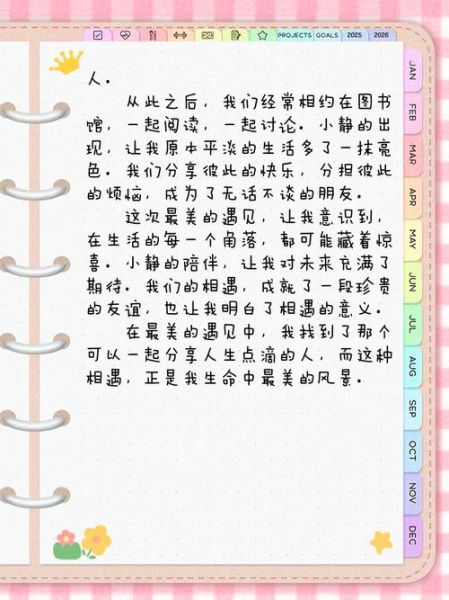 PROJECTS GOALS 2025 2026
人。
从此之后，我们经常相约在图书
馆，一起阅读，一起讨论。小静的出
现，让我原本平淡的生活多了一抹亮
色。我们分享彼此的快乐，分担彼此
的烦恼，成为了无话不谈的朋友。
这次最美的遇见，让我意识到，
在生活的每一个角落，都可能藏着惊
喜。小静的陪伴，让我对未来充满了
期待。我们的相遇，成就了一段珍贵
的友谊，也让我明白了相遇的意义。
在最美的遇见中，我找到了那个
可以一起分享人生点滴的人，而这种
相遇，正是我生命中最美的风景。
JAN
FEB
MAR
APR
MAY
JUN
JUL
AUG
SEP
OCT
NOV
DEC